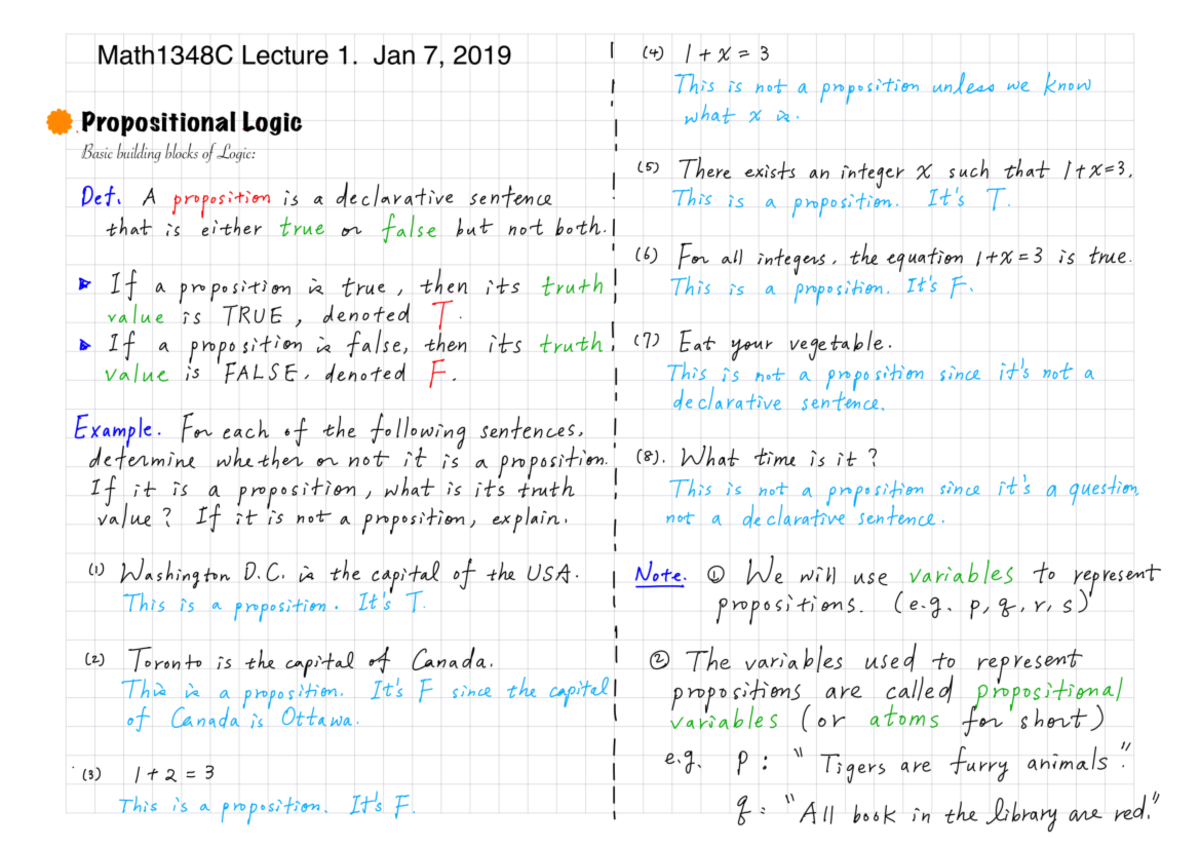 Math1348C Lecture 1. Jan 7, 2019
Propositional Logic
Basic building blocks of Logic:
Def. A proposition is a declarative sentence
that is either true or false but not both.
If a proposition is true, then its truth
value is TRUE, denoted T.
If a proposition is false, then its truth
value is FALSE, denoted F.
Example. For each of the following sentences,
determine whether or not it is a proposition.
If it is a proposition, what is its truth
value? If it is not a proposition, explain.
(1) Washington D.C. is the capital of the USA.
This is a proposition. It's T.
(2) Toronto is the capital of Canada.
This is a proposition. It's F since the capital
of Canada is Ottawa.
(3) 1+2 = 3
This is a proposition. It's F.
(4) 1+x = 3
This is not a proposition unless we know
what x is.
(5) There exists an integer x such that 1+x=3.
This is a proposition. It's T.
(6) For all integers, the equation 1+x=3 is true.
This is a proposition. It's F.
(7) Eat your vegetable.
This is not a proposition since it's not a
declarative sentence.
(8). What time is it?
This is not a proposition since it's a question
not a declarative sentence.
Note. ① We will use variables to represent
propositions. (e.g. p, q, r, s)
② The variables used to represent
propositions are called propositional
variables (or atoms for short)
e.g. p: "Tigers are furry animals".
q: "All book in the library are red."